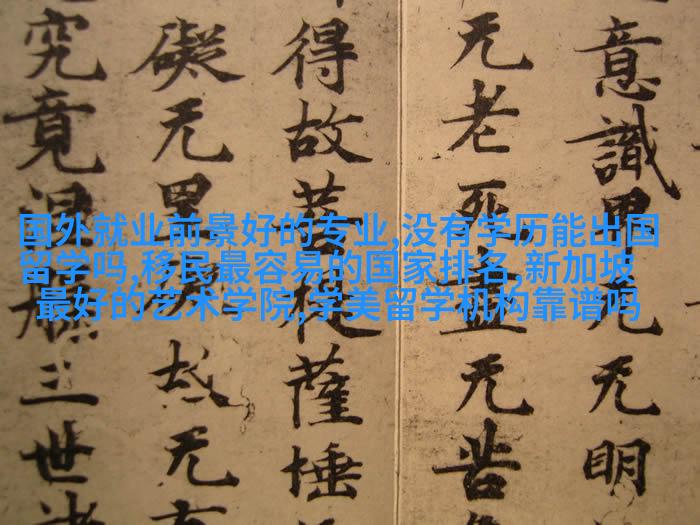 意識界无无明
无老死盡无苦
得故菩提薩埵
礙无罣礙故无有
究竟涅槃三世諸
国外就业前景好的专业,没有学历能出国
留学吗,移民最容易的国家排名,新加坡
最好的艺术学院,学美留学机构靠谱吗